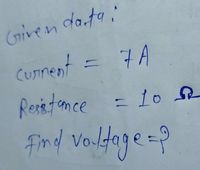 Given data:
current = 7A
Resistance = 10 Ω
Find voltage = ?